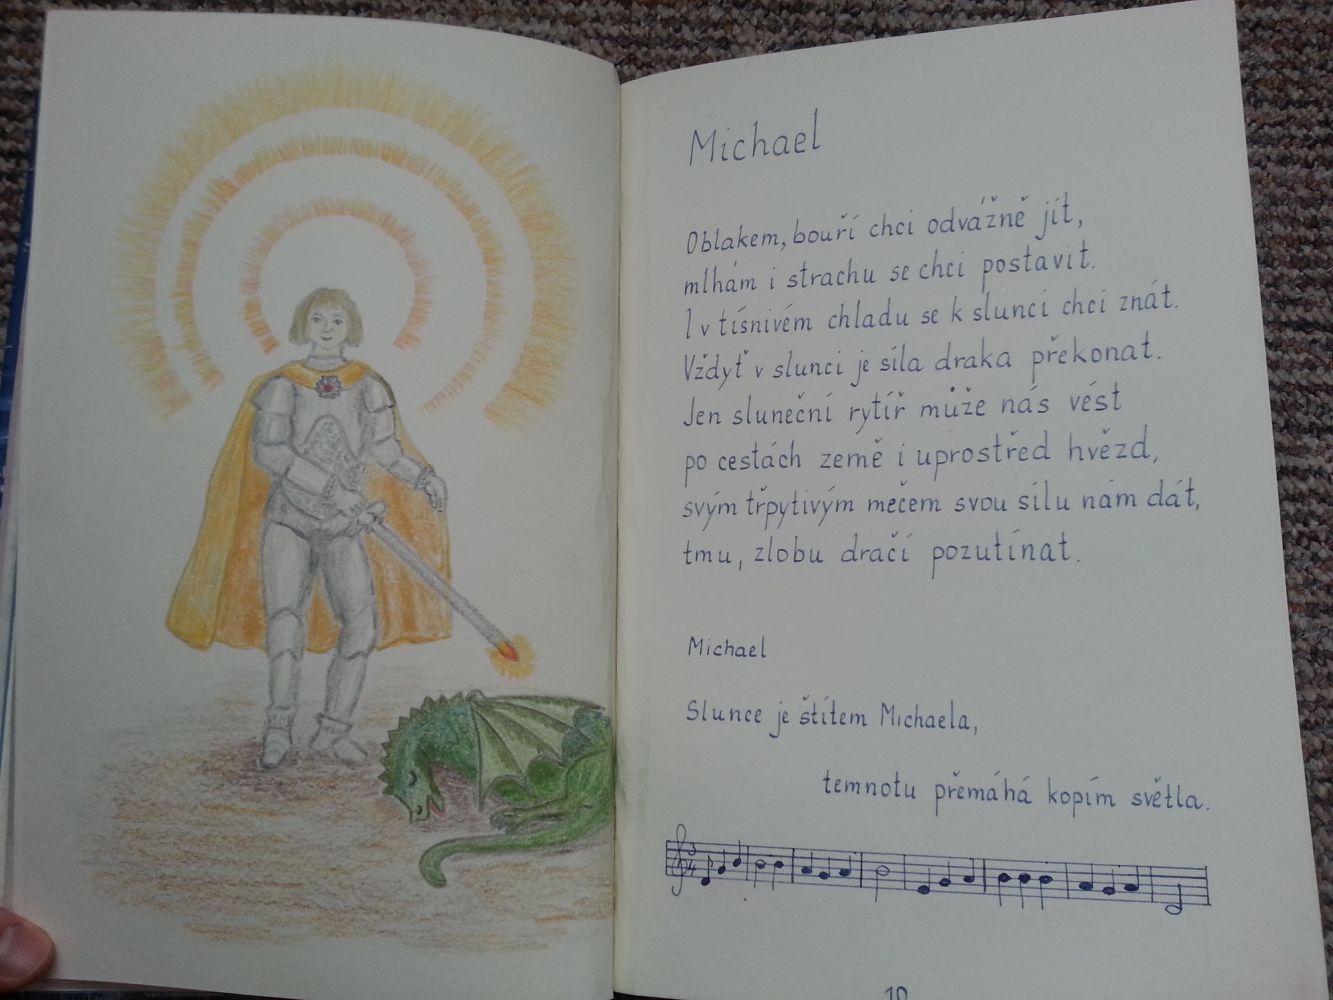 Michael
Oblakem, bouří chci odvážně jít,
mlhám i strachu se chci postavit.
I v tísnivém chladu se k slunci chci znát.
Vždyť v slunci je síla draka překonat.
Jen sluneční rytíř může nás vést
po cestách země i uprostřed hvězd,
svým třpytivým mečem svou sílu nám dát,
tmu, zlobu dračí pozutínat.
Michael
Slunce je štítem Michaela,
temnotu přemáhá kopím světla.
3
4
10